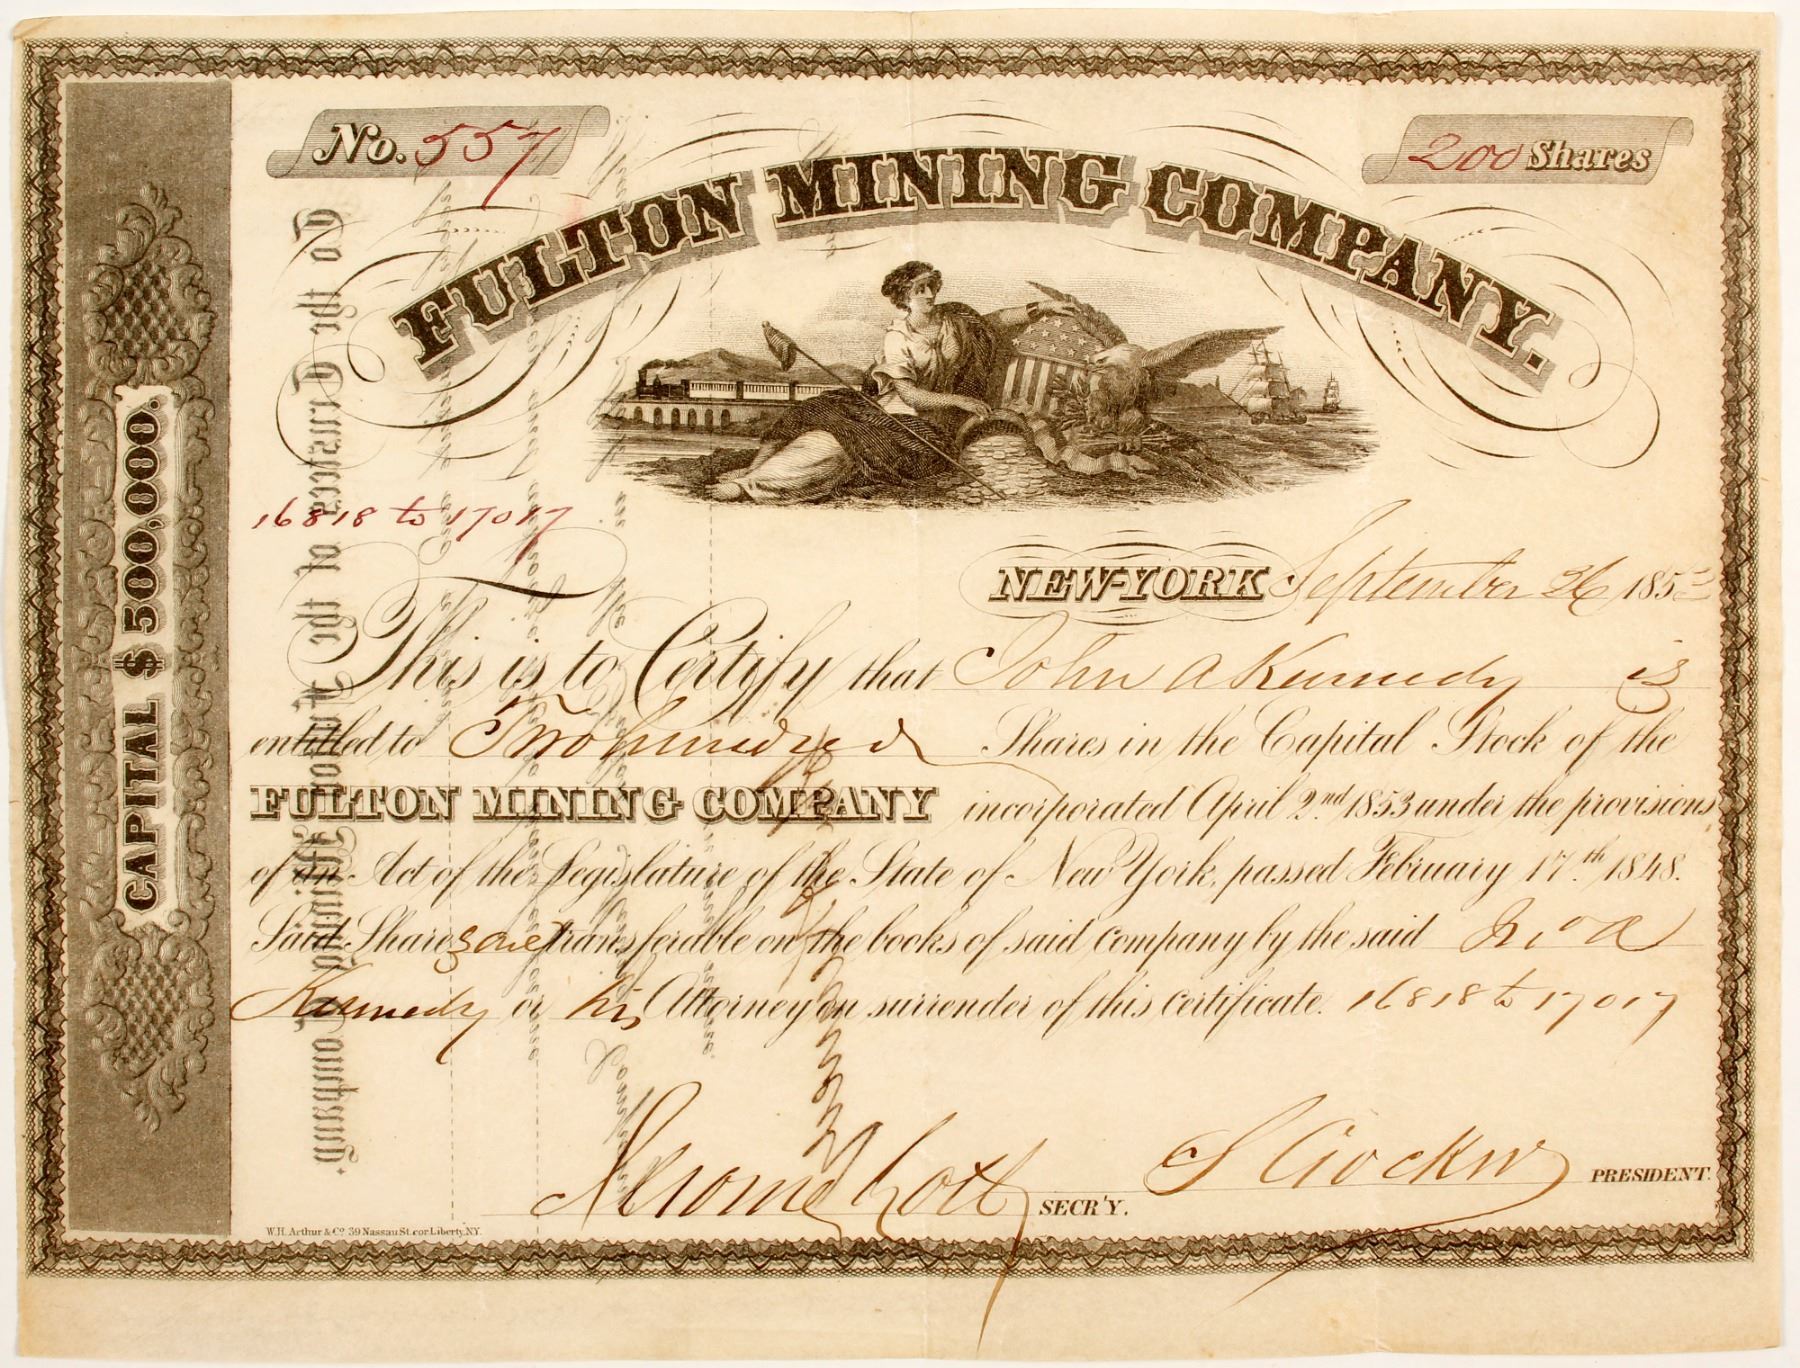 No. 557
200 Shares
FULTON MINING COMPANY.
CAPITAL $500,000.
16818 to 17017
NEW-YORK September 26 185
This is to Certify that John A Kennedy is
entitled to Two hundred Shares in the Capital Stock of the
FULTON MINING COMPANY incorporated April 2nd 1853 under the provisions
of an Act of the Legislature of the State of New York, passed February 17th 1848.
Said Shares are transferable on the books of said company by the said Jno A
Kennedy or his Attorney on surrender of this certificate. 16818 to 17017
SECR'Y.
PRESIDENT.
W.H. Arthur & Co. 39 Nassau St. cor. Liberty, NY.
To the Trustees of the Fulton Mining Company.